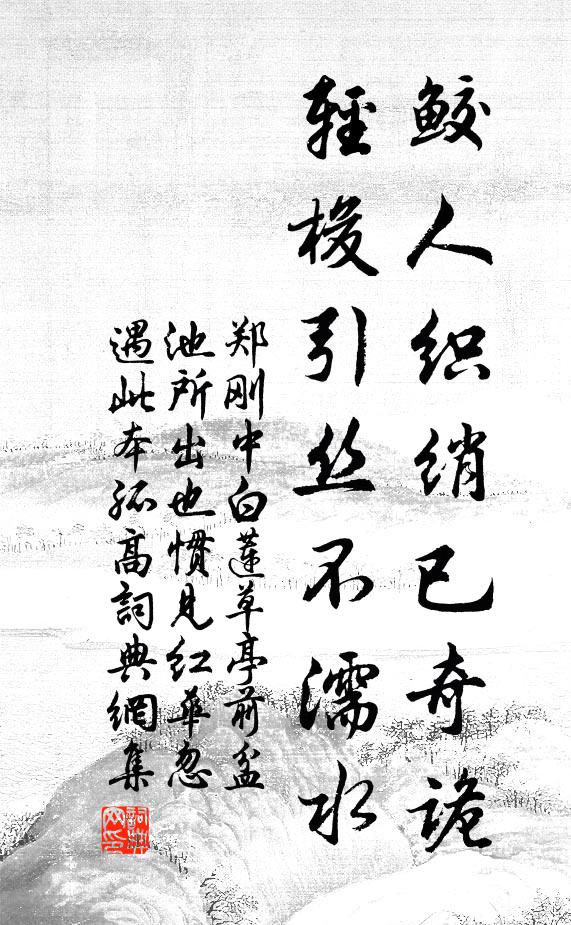 鲛人织绡已奇诡
輕梭引丝不濡水
郑刚中白蓮草亭前盆
池所出也慣見红華忽
遇此本孤高詞典網集